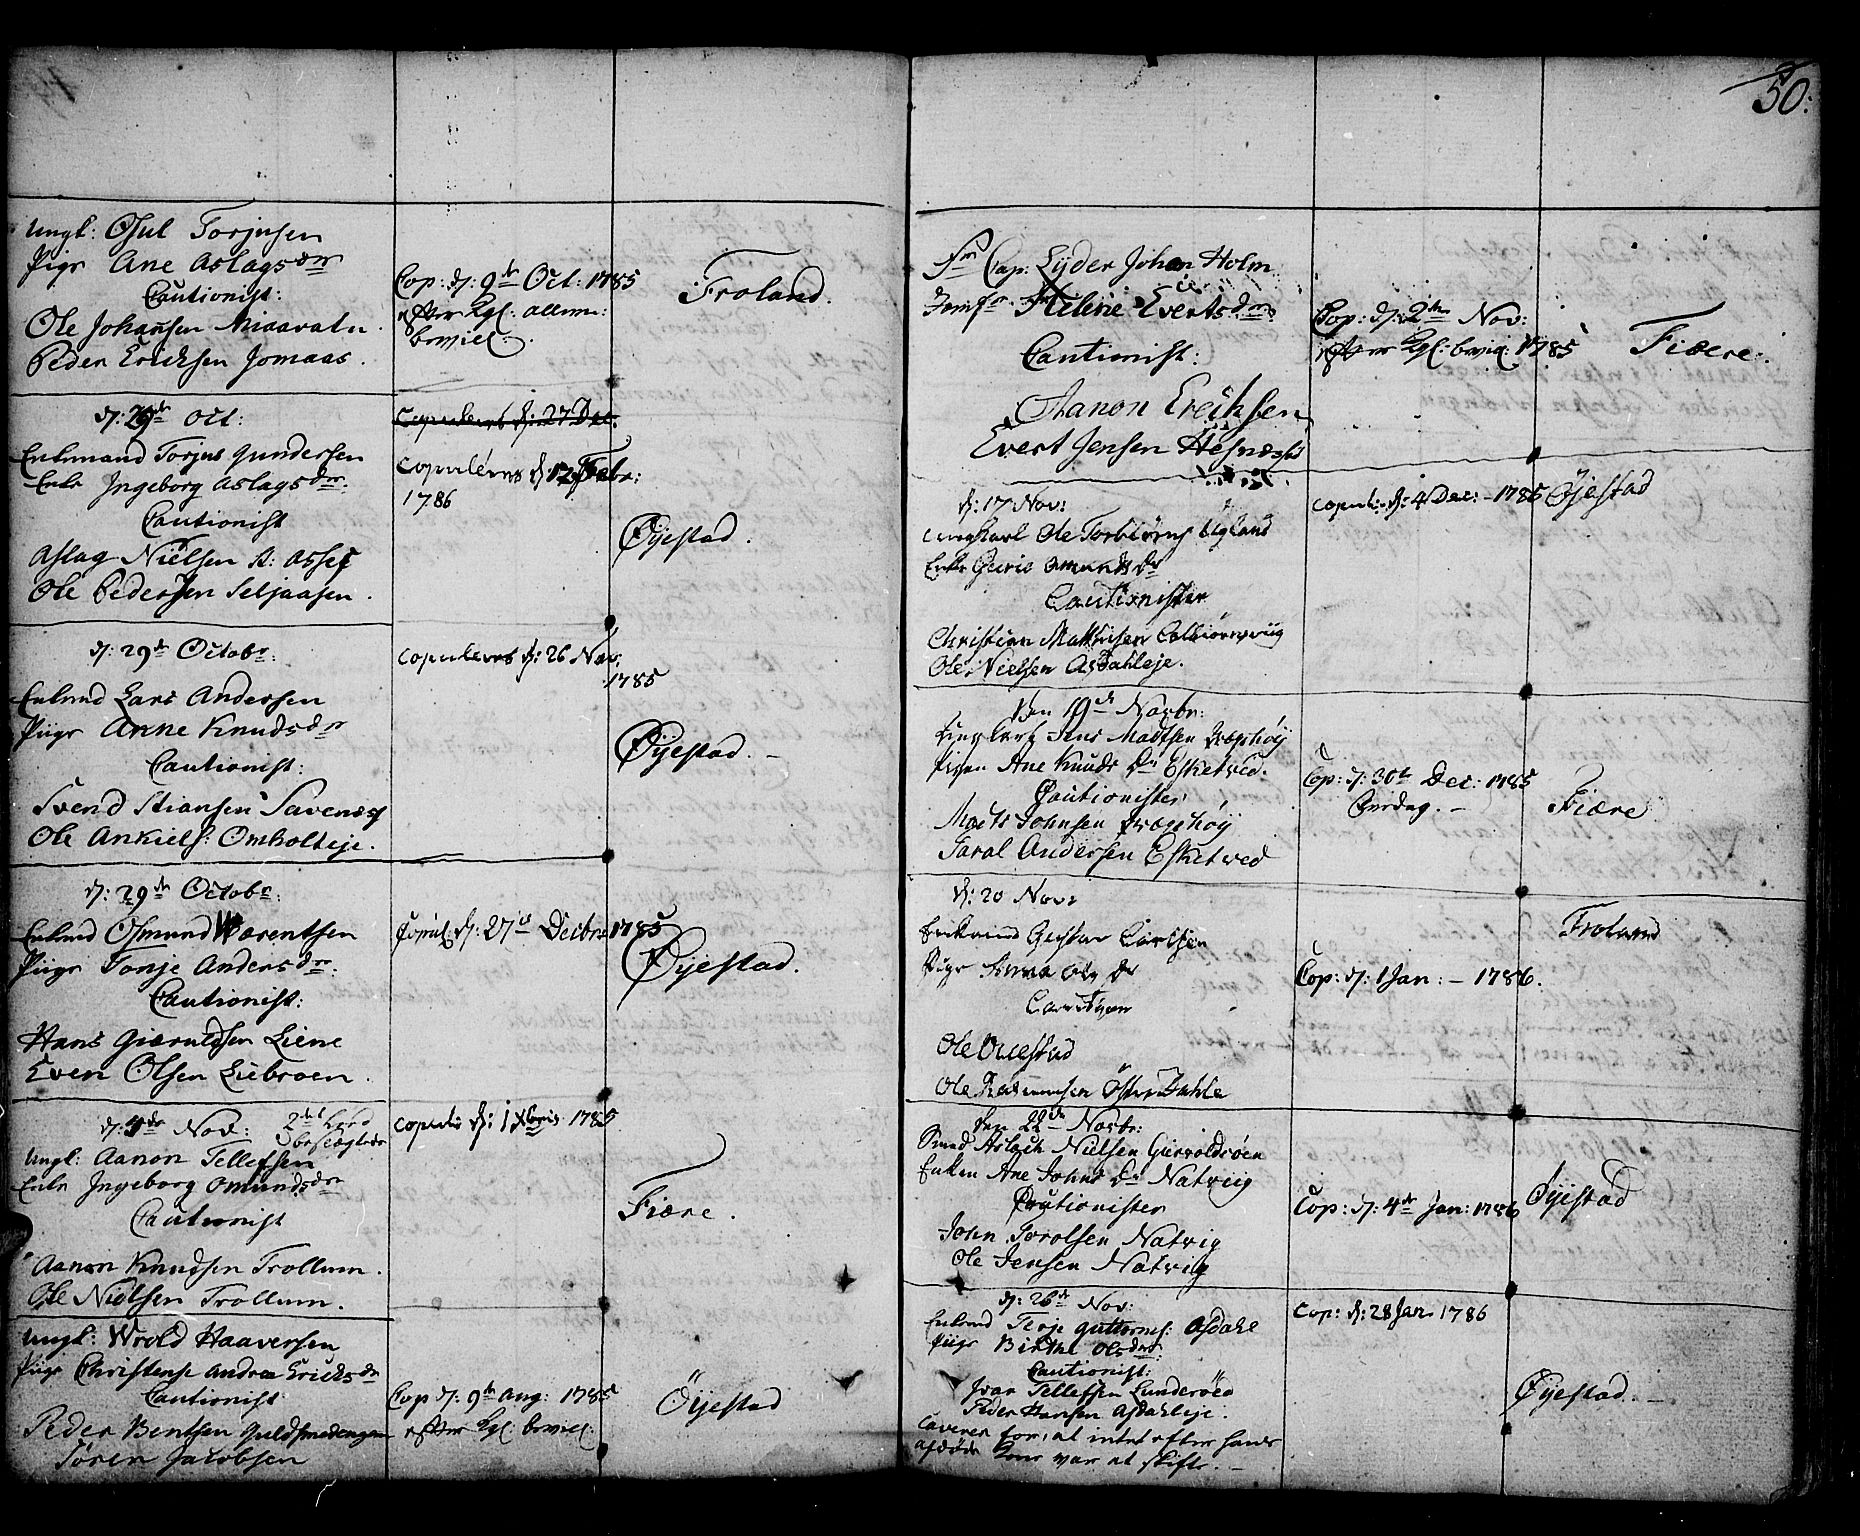 50:
Ungk: Osul Torjusen
Pige Ane Aslagsdr
Cautionist:
Ole Johansen Miaavatn.
Peder Ericksen Jomaas.
Cop: d: 9de Oct: 1785
efter Kgl: allern:
bewiel:
Froland.
d: 29de Oct:
Enkemand Torjus Gundersen
Enke Ingeborg Aslagsdr:
Cautionist
Aslag Nielsen
Ole Pedersen Seljaasen.
Copuleret d: 27 Dec.
Copuleres d: 12 Febr:
1786
Øyestad.
d: 29de Octobr:
Enkmd Lars Andersen
Piige Anne Knudsdr
Cautionist:
Svend Stiansen Savenæs
Ole Ankiels: Omholteje.
copuleret d: 26 Nov.
1785
Øyestad. -
d: 29de Octobr:
Enkmd Osmund Warentsen
Piige Tonje Andersdr.
Cautionist:
Hans Giæruldsen Liene
Even Olsen Liebroen.
Copul. d: 27de Decbr 1785
Øyestad.
d: 4de Nov:
Ungk: Aanon Tellefsen
Enke Ingeborg Omundsdr
Cautionist
Aanon Knudsen Trollum.
Ole Nielsen Trollum.
copule d: 1 Xbris 1785
Fiære.
Ungk: Wrold Haaversen
Piige Christense Andrea Ericksdr
Cautionist
Peder Bentsen Guldsmedengen
Søren Jacobsen
Cop d: 9de Aug: 1785
efter Kgl: bewiel:
Øyestad
Sr Cap: Lyder Johan Holm
Jomfr Helene Evertsdr
Cautionist:
Aanon Ericksen
Evert Jensen Hesnæs
Cop: d: 2den Nov:
efter Kgl: bevil: 1785
Fiære.
d: 17 Nov:
Ungkarl Ole Torbiørns Ugland
Enke Gurie Omundsdr
Cautionister
Christian Mathisen
Ole Nielsen Asdahleje.
copul: d: 4 Dec: - 1785
Øjestad
Den 19de Novbr:
Ungkarl Jens Madtsen
Pigen Ane Knuds Dr Esketved.
Cautionister
Mads Johnsen
Taral Andersen Esketved
Cop: d: 30te Dec: 1785
Fiære
d: 20 Nov:
Enkemd Gustav Carlsen
Pige Anna Ols Dr
Ole
Ole Rasmusen Østre Dahle
Cop: d: 1 Jan: - 1786.
Froland
Den 22de Novbr:
Smed Aslach Nielsen Giervoldsøen
Enken Ane Johns Dr Natviig
Cautionister
John Torolsen Natvig
Ole Jensen Natvig
Cop: d: 4de Jan: 1786
Øyestad
d: 26de Nov:
Enkmd Terje Guttorms: Asdahl
Piige Birthe Olsdr:
Cautionist:
Ivar Tellefsen Lunderöed
Peder Hansen Asdahleje.
Caverer for, at intet efter hans
afdøde Kone var at skifte. -
Cop: d: 28 Jan 1786
Øyestad. -